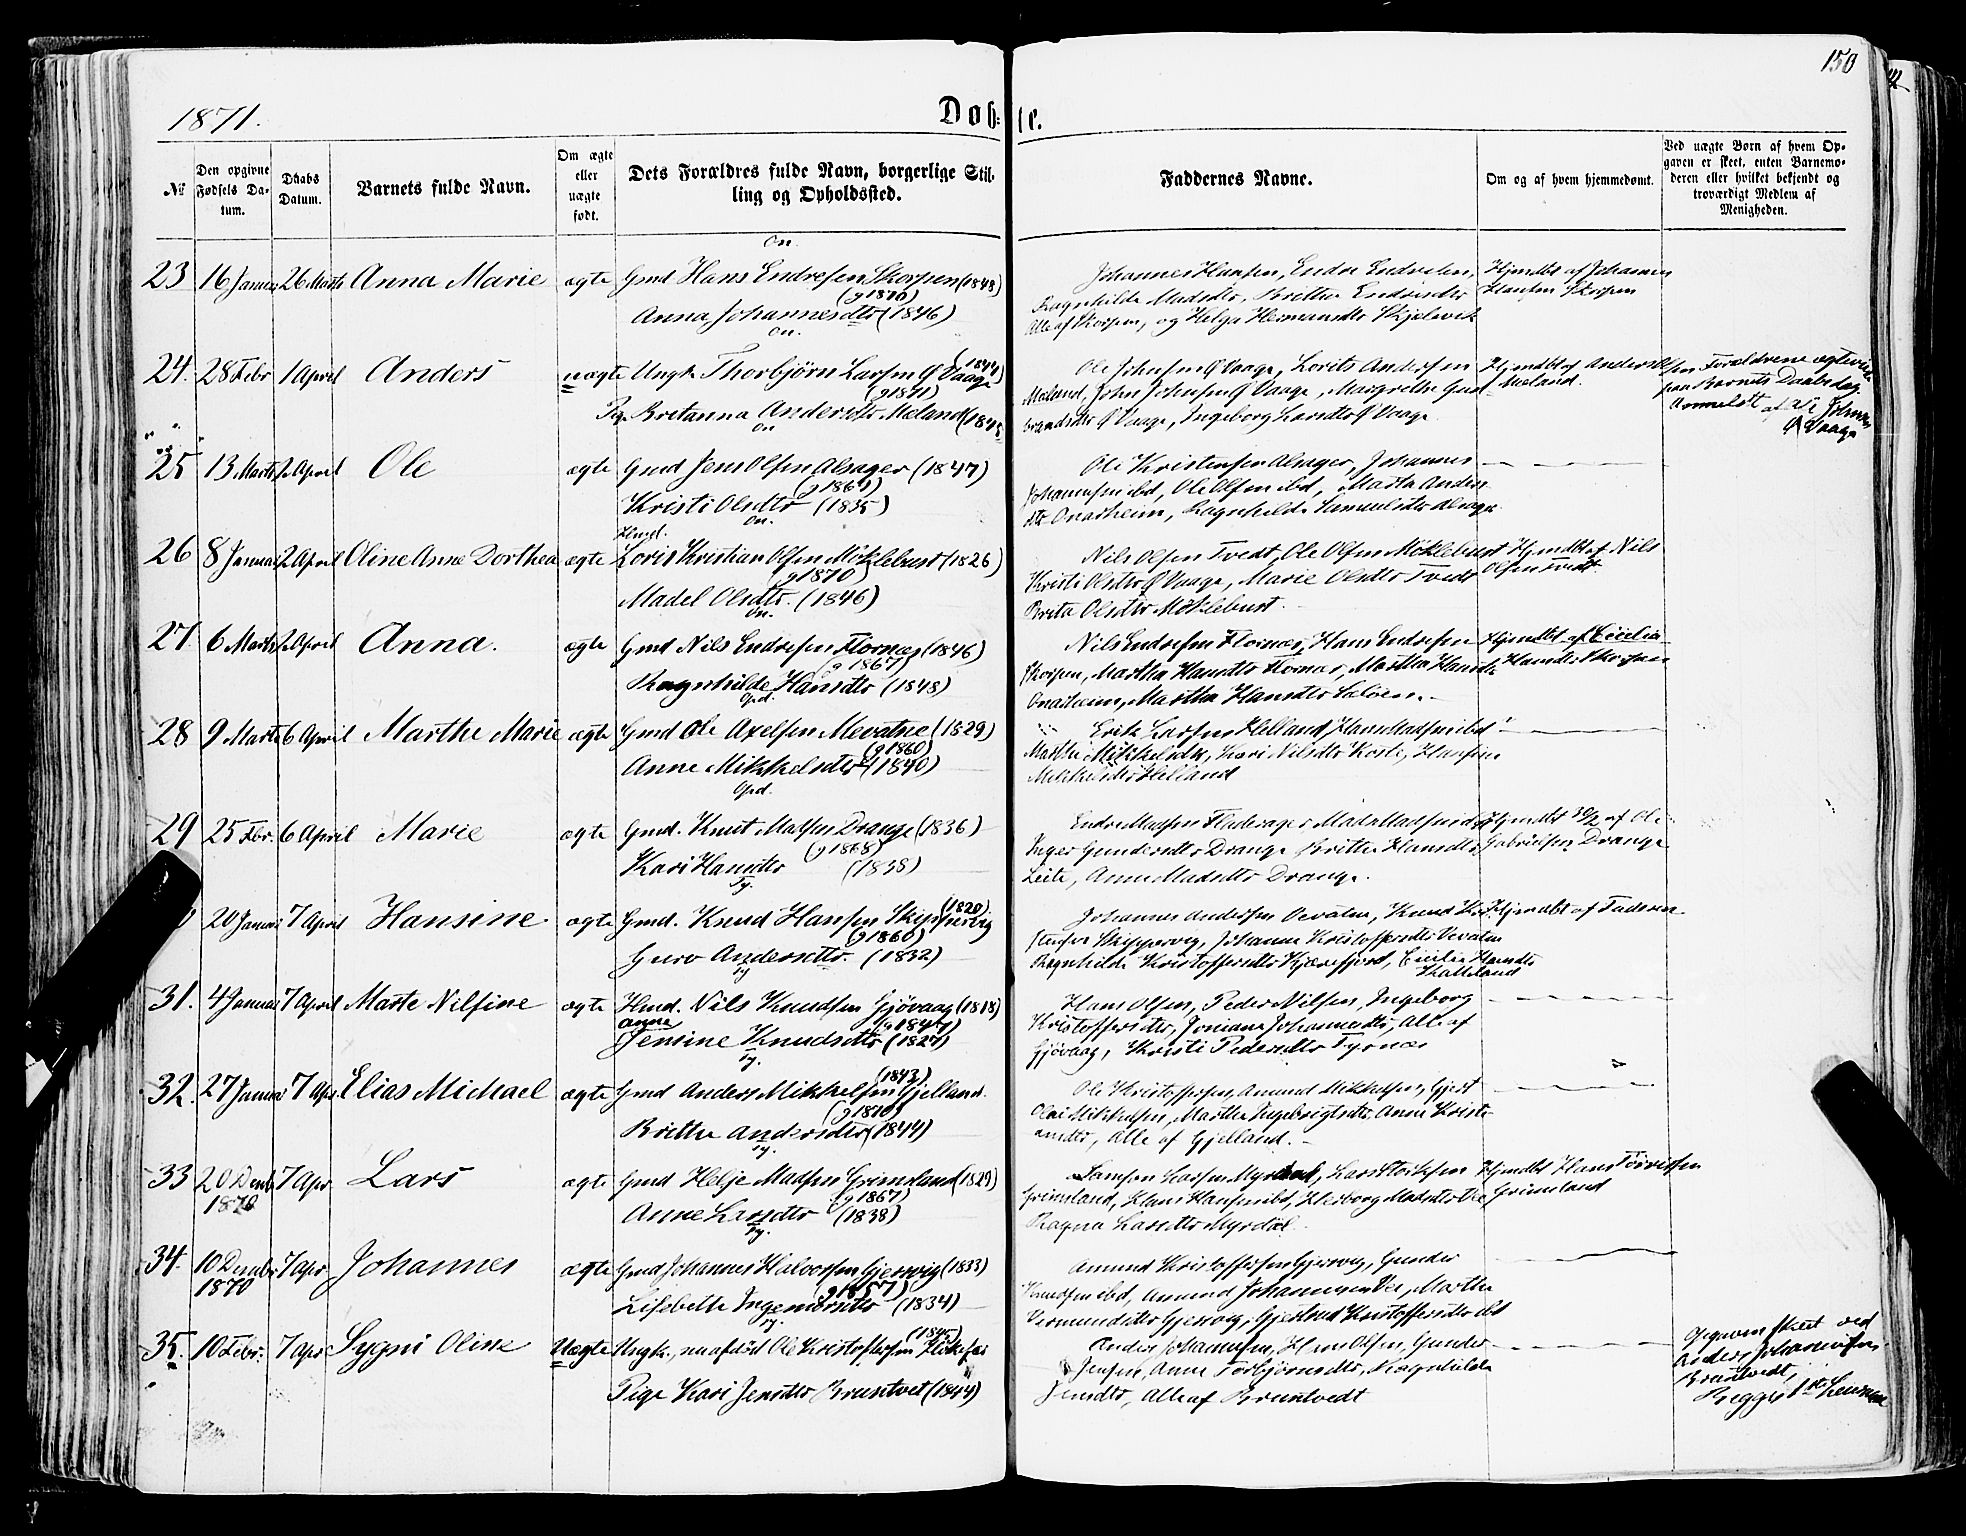 150
1871.
Døb-
te.
№
Den opgivne Fødsels Da-
tum.
Daabs
Datum.
Barnets fulde Navn.
Om ægte
eller
uægte
født.
Dets Forældres fulde Navn, borgerlige Stil-
ling og Opholdssted.
Faddernes Navne.
Om og af hvem hjemmedøbt.
Ved uægte Børn af hvem Op-
gaven er skeet, enten Barnemo-
deren eller hvilket bekjendt og
troværdigt Medlem af
Menigheden.
On.
23 16 Januar 26 Marts Anna Marie ægte Gmd Hans Endresen Skorpen (1848)
(g 1870)
Anna Johannesdtr (1846)
Johannes Hansen, Endre Endresen,
Ragnhilde Madsdtr, Brithe Endresdtr
Alle af Skorpen, og Helga Hermansdtr Skjelvik
Hjmdbt af Johannes
Hansen Skorpen
On.
24. 28 Febr 1 April Anders uægte Ungk. Thorbjørn Larsen Ø Vaage (1844)
(g 1871)
Pige Britanna Andersdtr Meland (1848
Ole Johnsen Ø Vaage, Lorits Andersen
Meland, John Johnsen Ø Vaage, Margrethe Gud
brandsdtr Ø Vaage, Ingeborg Larsdtr Ø Vaage
Hjmdbt af Anders Ol
sen Meland.
Forældrene ægteviede
paa Barnets Daabsdag.
Anmeldt af Ole Johnsen
Ø Vaage
On
25 13 Marts 2 April Ole ægte Gmd Jens Olsen Alsager (1847)
(g 1869)
Kristi Olsdtr (1835)
Ole Kristensen Alsager, Johannes
Johannesen ibd, Ole Olsen ibd, Marta Anders
dtr Onarheim, Ragnhilde Samuelsdtr Alsager
On.
Husd.
26 8 Januar 2 April Oline Anne Dorthea ægte Loris Kristian Olsen Møklebust (1826)
(g 1870)
Madel Olsdtr. (1846)
Nils Olsen Tvedt, Ole Olsen Møklebust
Kristi Olsdtr Ø Vaage, Marie Olsdtr Tvedt
Brita Olsdtr Møklebust.
Hjmdbt af Nils
Olsen Tvedt.
On.
27. 6 Marts 2 April Anna. ægte Gmd Nils Endresen Flornæs (1846)
(g 1867)
Ragnhilde Hansdtr (1848)
Nils Endresen Flornæs, Hans Endresen
Skorpen, Martha Hansdtr Flornæs, Martha Hansdtr
Onarheim, Martha Hansdtr
Hjmdbt af Cecilia
Hansdtr Skorpen
Opd.
28 9 Marts 6 April Marthe Marie ægte Gmd Ole Axelsen Mevatne (1829)
(g 1860)
Anne Mikkelsdtr (1840)
Erik Larsen Helland, Hans Madsen ibd
Marthe Mikkelsdtr, Kari Nilsdtr
Mikkelsdtr Helland
Opd.
29 25 Febr. 6 April Marie ægte Gmd. Knut Madsen Drange (1836)
(g 1868)
Kari Hansdtr (1838)
Endre Madsen
Inger Gundersdtr Drange, Brithe Hansdtr
Leite, Anne Madsdtr Drange.
Hjmdbt af Ole
Gabrielsen Drange
Ty.
20 Januar 7 April Hansine. ægte Gmd. Knud Hansen Skippervig (1820)
(g 1860)
Guro Andersdtr. (1832)
Johannes Andersen Vevatne, Knud Kri
stensen Skippervig, Johanne Kristoffersdtr Vevatne
Ragnhilde Kristoffersdtr Kjærefjord, Cecilia Hansdtr
Katteland
Hjmdbt af Faderen
Ty
31. 4 Januar 7 April Marte Nilsine ægte Husd. Nils Knudsen Gjøvaag (1818)
(g 1847)
Anne
Jensine Knudsdtr (1827)
Hans Olsen, Peder Nilsen, Ingeborg
Kristoffersdtr, Johanne Johannesdtr, Alle af
Gjøvaag, Kristi Pedersdtr Tyrnæs
Ty.
32. 27 Januar 7 Apr. Elias Michael ægte Gmd Anders Mikkelsen Gjelland. (1843)
(g 1870)
Brithe Andersdtr (1844)
Ole Kristoffersen, Amund Mikkelsen, Gjert
Olai Mikkelsen, Marthe Ingebrigtsdtr, Anne Kristi
ansdtr, Alle af Gjelland.
Ty.
33 20 Decmb 7 Apr Lars ægte Gmd Helje Madsen Grimeland (1829)
1870
(g 1867)
Anne Larsdtr (1838)
Samson Larsen Myrdal, Lars Torkelsen
Grimeland, Hans Hansen ibd, Herborg Madsdtr
Ragna Larsdtr Myrdal.
Hjmdbt Hans
Grimeland
Ty.
34. 10 Decmb 7 Apr Johannes ægte Gmd Johannes Halvorsen Gjersvig (1833)
1870
(g 1857)
Lisebette Ingemorsdtr (1834)
Amund Kristoffersen Gjersvig, Gunder
Knudsen ibd, Amund Johannesen Vee, Marthe
Vermundsdtr Gjersvig, Gjertrud Kristoffersdtr ibd
Ty.
35. 10 Febr. 7 Apr Sygni Oline Uægte Ungk., nu afdød Ole Kristoffersen (1845)
Pige Kari Jensdtr Bruntvet (1844)
Anders Johannesen, Hans Olsen, Gunder
Jensen, Anne Torbjørnsdtr, Ragnhilde
Jensdtr, Alle af Bruntvedt
Opgaven skeet ved
Anders Johannesen
Bruntvedt,
Begges 1ste Leiermaal